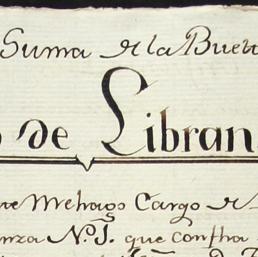 Suma de la Buelt
o de Libran
ue me hago Cargo de
anza N.º 1. que consta